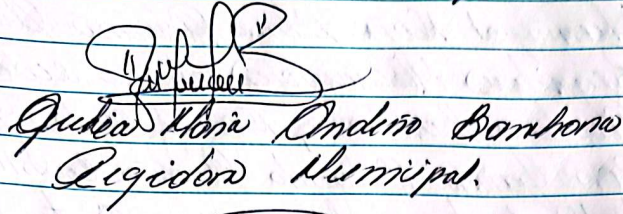 María Andino Barahona
Regidora Municipal.